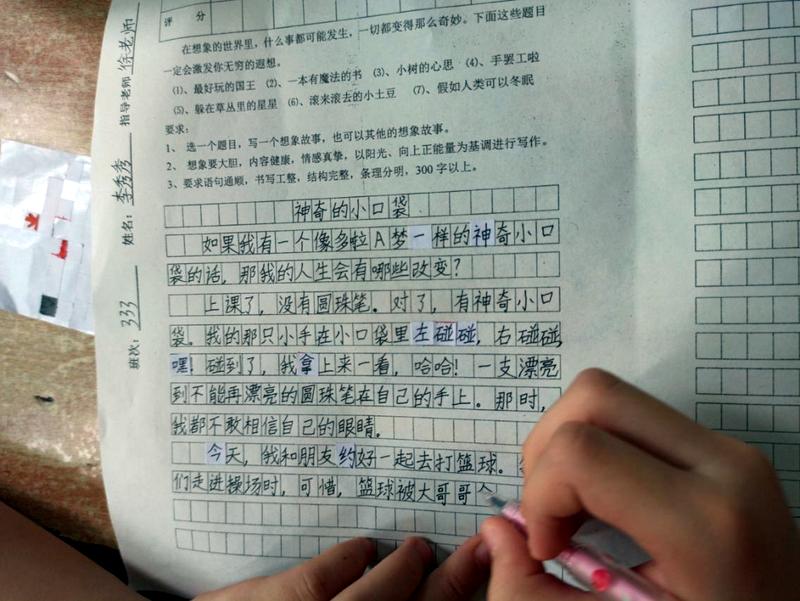 评 分
在想象的世界里，什么事都可能发生，一切都变得那么奇妙。下面这些题目
一定会激发你无穷的遐想。
⑴、最好玩的国王 ⑵、一本有魔法的书 ⑶、小树的心思 ⑷、手罢工啦
⑸、躲在草丛里的星星 ⑹、滚来滚去的小土豆 ⑺、假如人类可以冬眠
要求：
1、 选一个题目，写一个想象故事，也可以其他的想象故事。
2、 想象要大胆，内容健康，情感真挚，以阳光、向上正能量为基调进行写作。
3、要求语句通顺，书写工整，结构完整，条理分明，300字以上。
神奇的小口袋
如果我有一个像多啦A梦一样的神奇小口
袋的话，那我的人生会有哪些改变？
上课了，没有圆珠笔。对了，有神奇小口
袋。我的那只小手在小口袋里左碰碰，右碰碰，
嘿！碰到了，我拿上来一看，哈哈！一支漂亮
到不能再漂亮的圆珠笔在自己的手上。那时，
我都不敢相信自己的眼睛。
今天，我和朋友约好一起去打篮球。
们走进操场时，可惜，篮球被大哥哥
班次：333 姓名：李秀秀 指导老师 徐老师